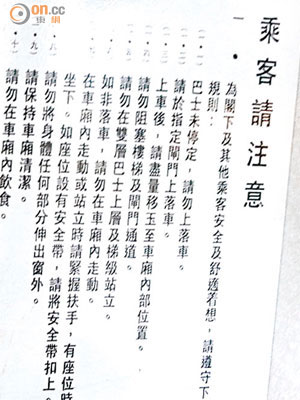 on.cc
東網
乘客請注意
一.
為閣下及其他乘客安全及舒適着想，請遵守下
規則：
巴士未停定，請勿上落車。
請於指定閘門上落車。
上車後，請盡量移玉至車廂內部位置。
請勿阻塞樓梯及閘門通道。
請勿在雙層巴士上層及梯級站立。
如非落車，請勿在車廂內走動。
在車廂內走動或站立時請緊握扶手，有座位時
坐下。如座位設有安全帶，請將安全帶扣上。
請勿將身體任何部分伸出窗外。
請保持車廂清潔。
請勿在車廂內飲食。